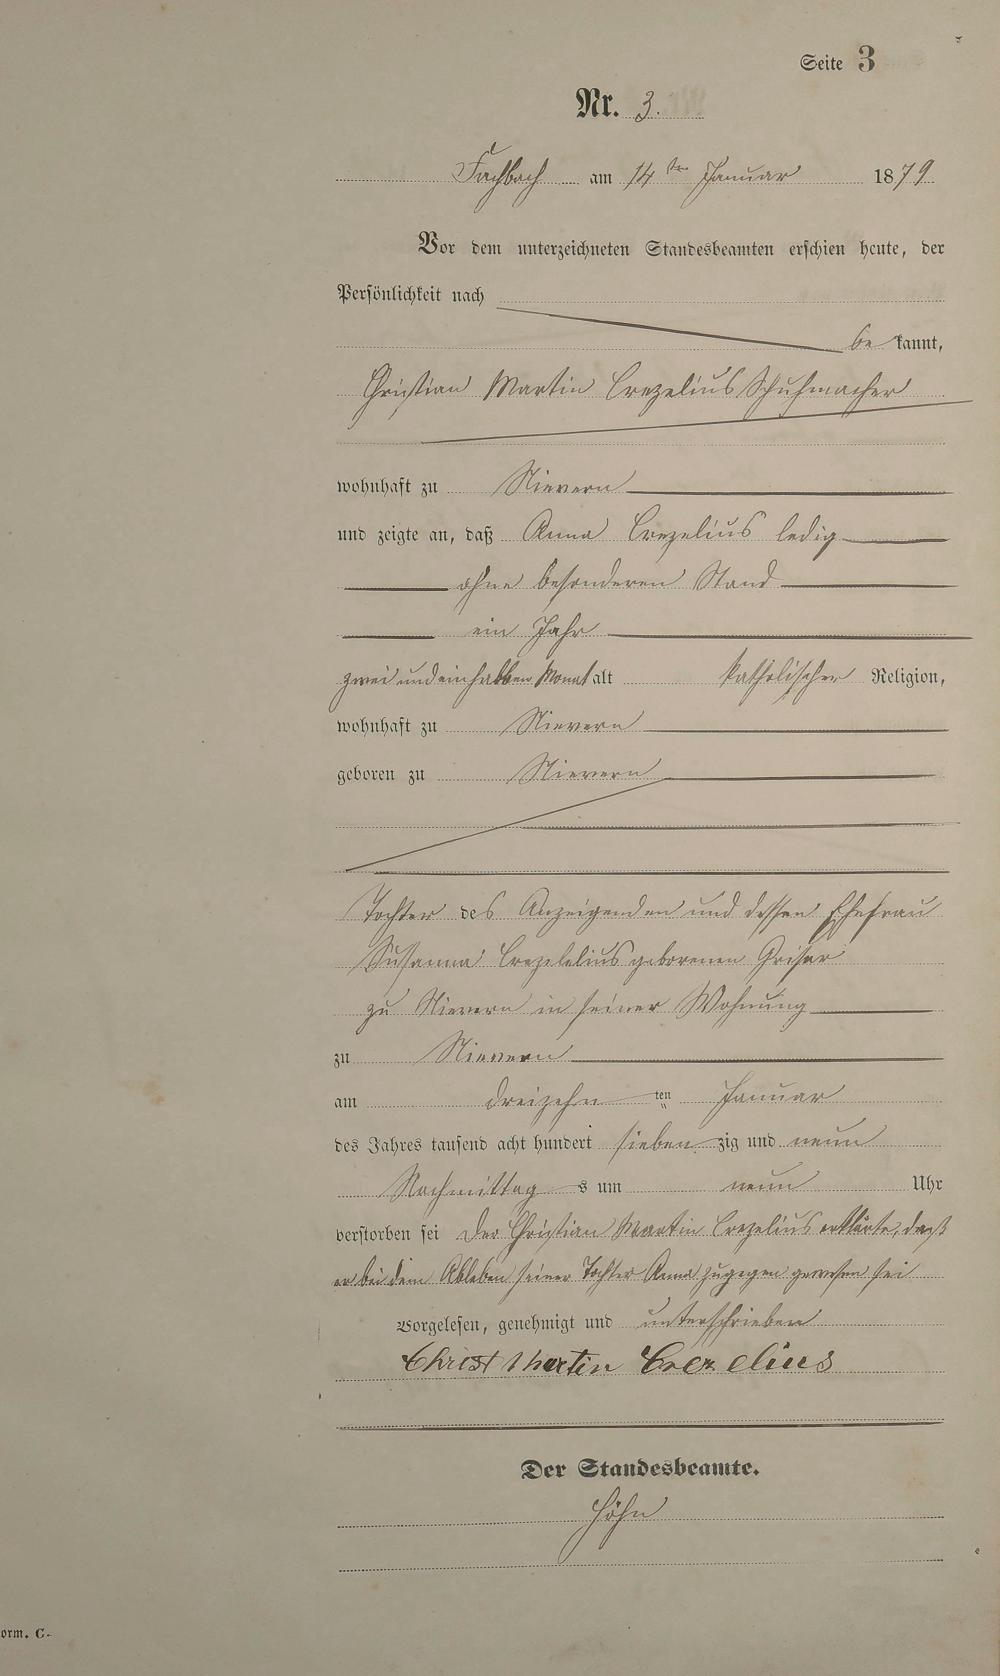 Seite 3
Nr. 3.
Fachbach am 14ten Januar 1879
Vor dem unterzeichneten Standesbeamten erschien heute, der
Persönlichkeit nach
be kannt,
Christian Martin Crezelius Schuhmacher
wohnhaft zu Nievern
und zeigte an, daß Anna Crezelius ledig
ohne besonderen Stand
ein Jahr
zwei und einhalben Monat alt katholischer Religion,
wohnhaft zu Nievern
geboren zu Nievern
Tochter des Anzeigenden und dessen Ehefrau
Susanna Crezelelius geborenen Griser
zu Nievern in seiner Wohnung
zu Nievern
am dreizehn ten Januar
des Jahres tausend acht hundert sieben zig und neun
Nachmittag s um neun Uhr
verstorben sei Der Christian Martin Crezelius erklärte, daß
er bei dem Ableben seiner Tochter Anna zugegen gewesen sei
Vorgelesen, genehmigt und unterschrieben
Christ Martin Crezelius
Der Standesbeamte.
Höhn
orm. C.